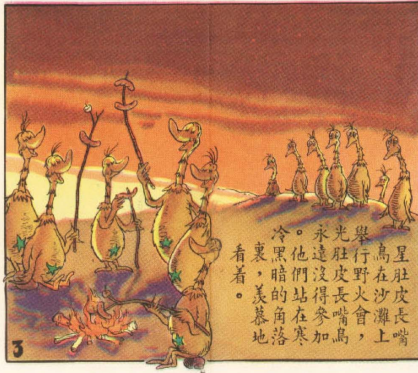 星肚皮長嘴
鳥在沙灘上
舉行野火會，
光肚皮長嘴鳥
永遠沒得參加
。他們站在寒
冷黑暗的角落
裏，羡慕地
看着。
3